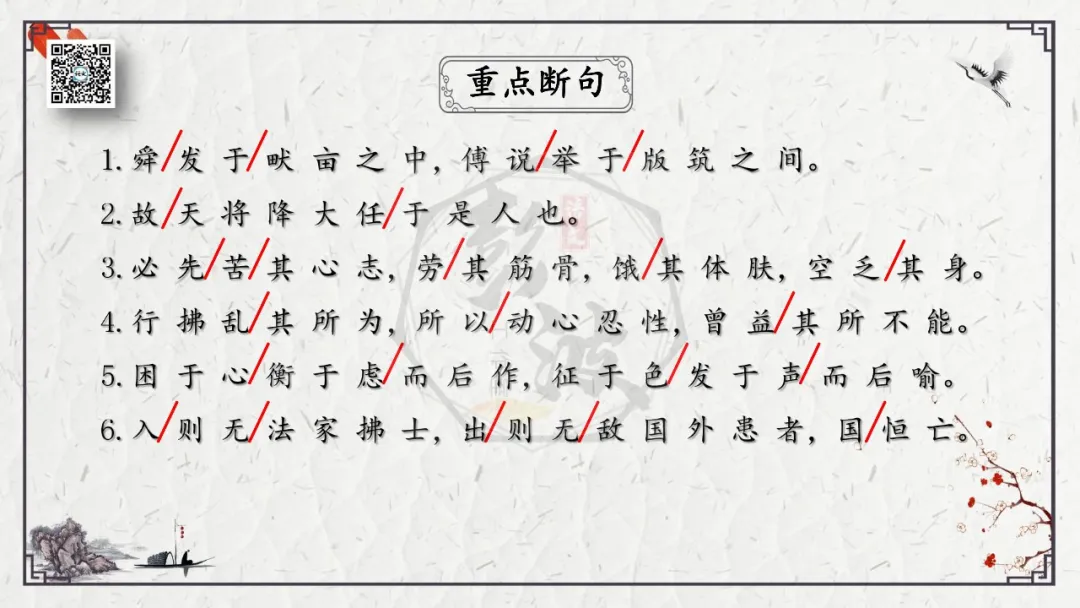 重点断句
1.舜/发于/畎亩之中，傅说/举于/版筑之间。
2.故/天将降大任/于是人也。
3.必先/苦/其心志，劳/其筋骨，饿/其体肤，空乏/其身。
4.行拂乱/其所为，所以/动心忍性，曾益/其所不能。
5.困于心/衡于虑/而后作，征于色/发于声/而后喻。
6.入/则无/法家拂士，出/则无/敌国外患者，国/恒亡。